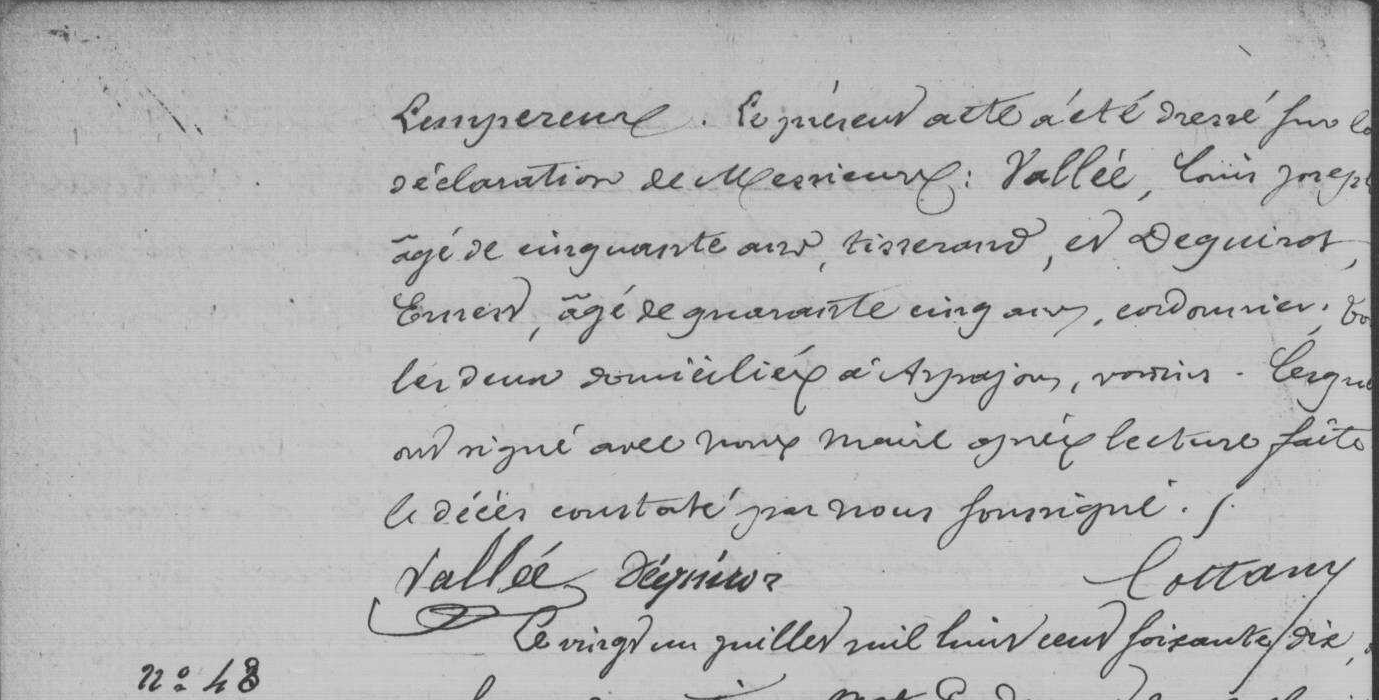 Lempereur. Le présent acte a été dressé sur la
déclaration de Messieurs: Vallée, Louis Joseph
âgé de cinquante ans, tisserand, et Deguirot,
Ernest, âgé de quarante cinq ans, cordonnier; 
les deux domiciliés à Arpajon, voisins. Lesque
ont signé avec nous Maire après lecture faite
le décès constaté par nous soussigné. /.
Vallée Déguirot Cottany
Le vingt un juillet mil huit cent soixante dix,
nº 48